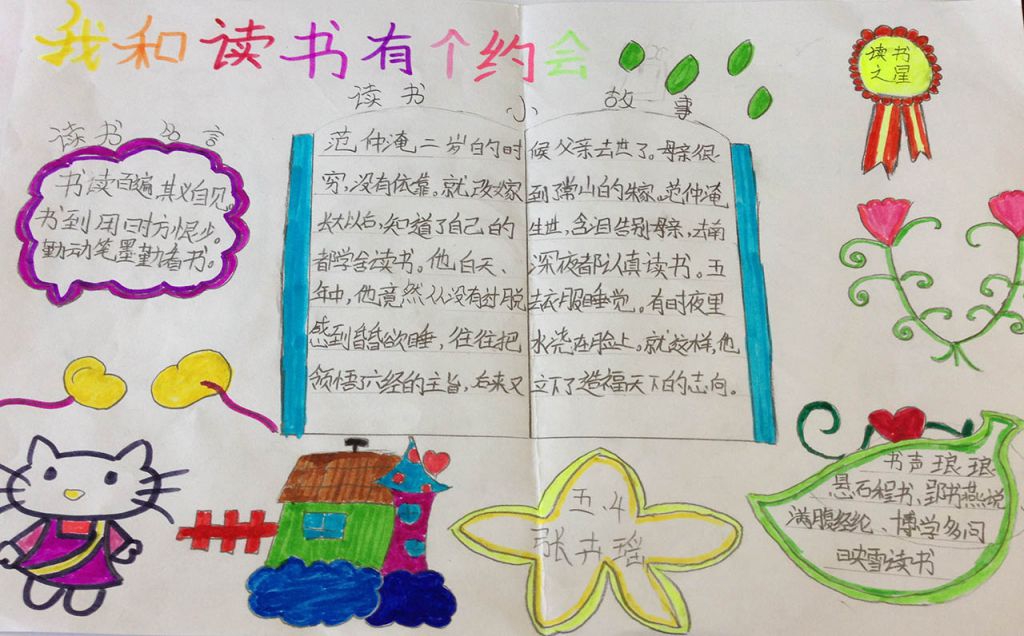 我和读书有个约会
读书
之星
读书小故事
读书名言
书读百遍其义自见。
书到用时方恨少。
勤动笔墨勤看书。
范仲淹二岁的时候父亲去世了。母亲很
穷,没有依靠。就改嫁到了常山的朱家。范仲淹
长大以后,知道了自己的生世,含泪告别母亲,去南
都学舍读书。他白天、深夜都认真读书。五
年中,他竟然从没有过脱去衣服睡觉。有时夜里
感到昏昏欲睡,往往把水浇在脸上。就这样,他
领悟了六经的主旨,后来又立下了造福天下的志向。
五.4
张卉瑶
书声琅琅
悬石程书、郢书燕说
满腹经纶、博学多问
映雪读书